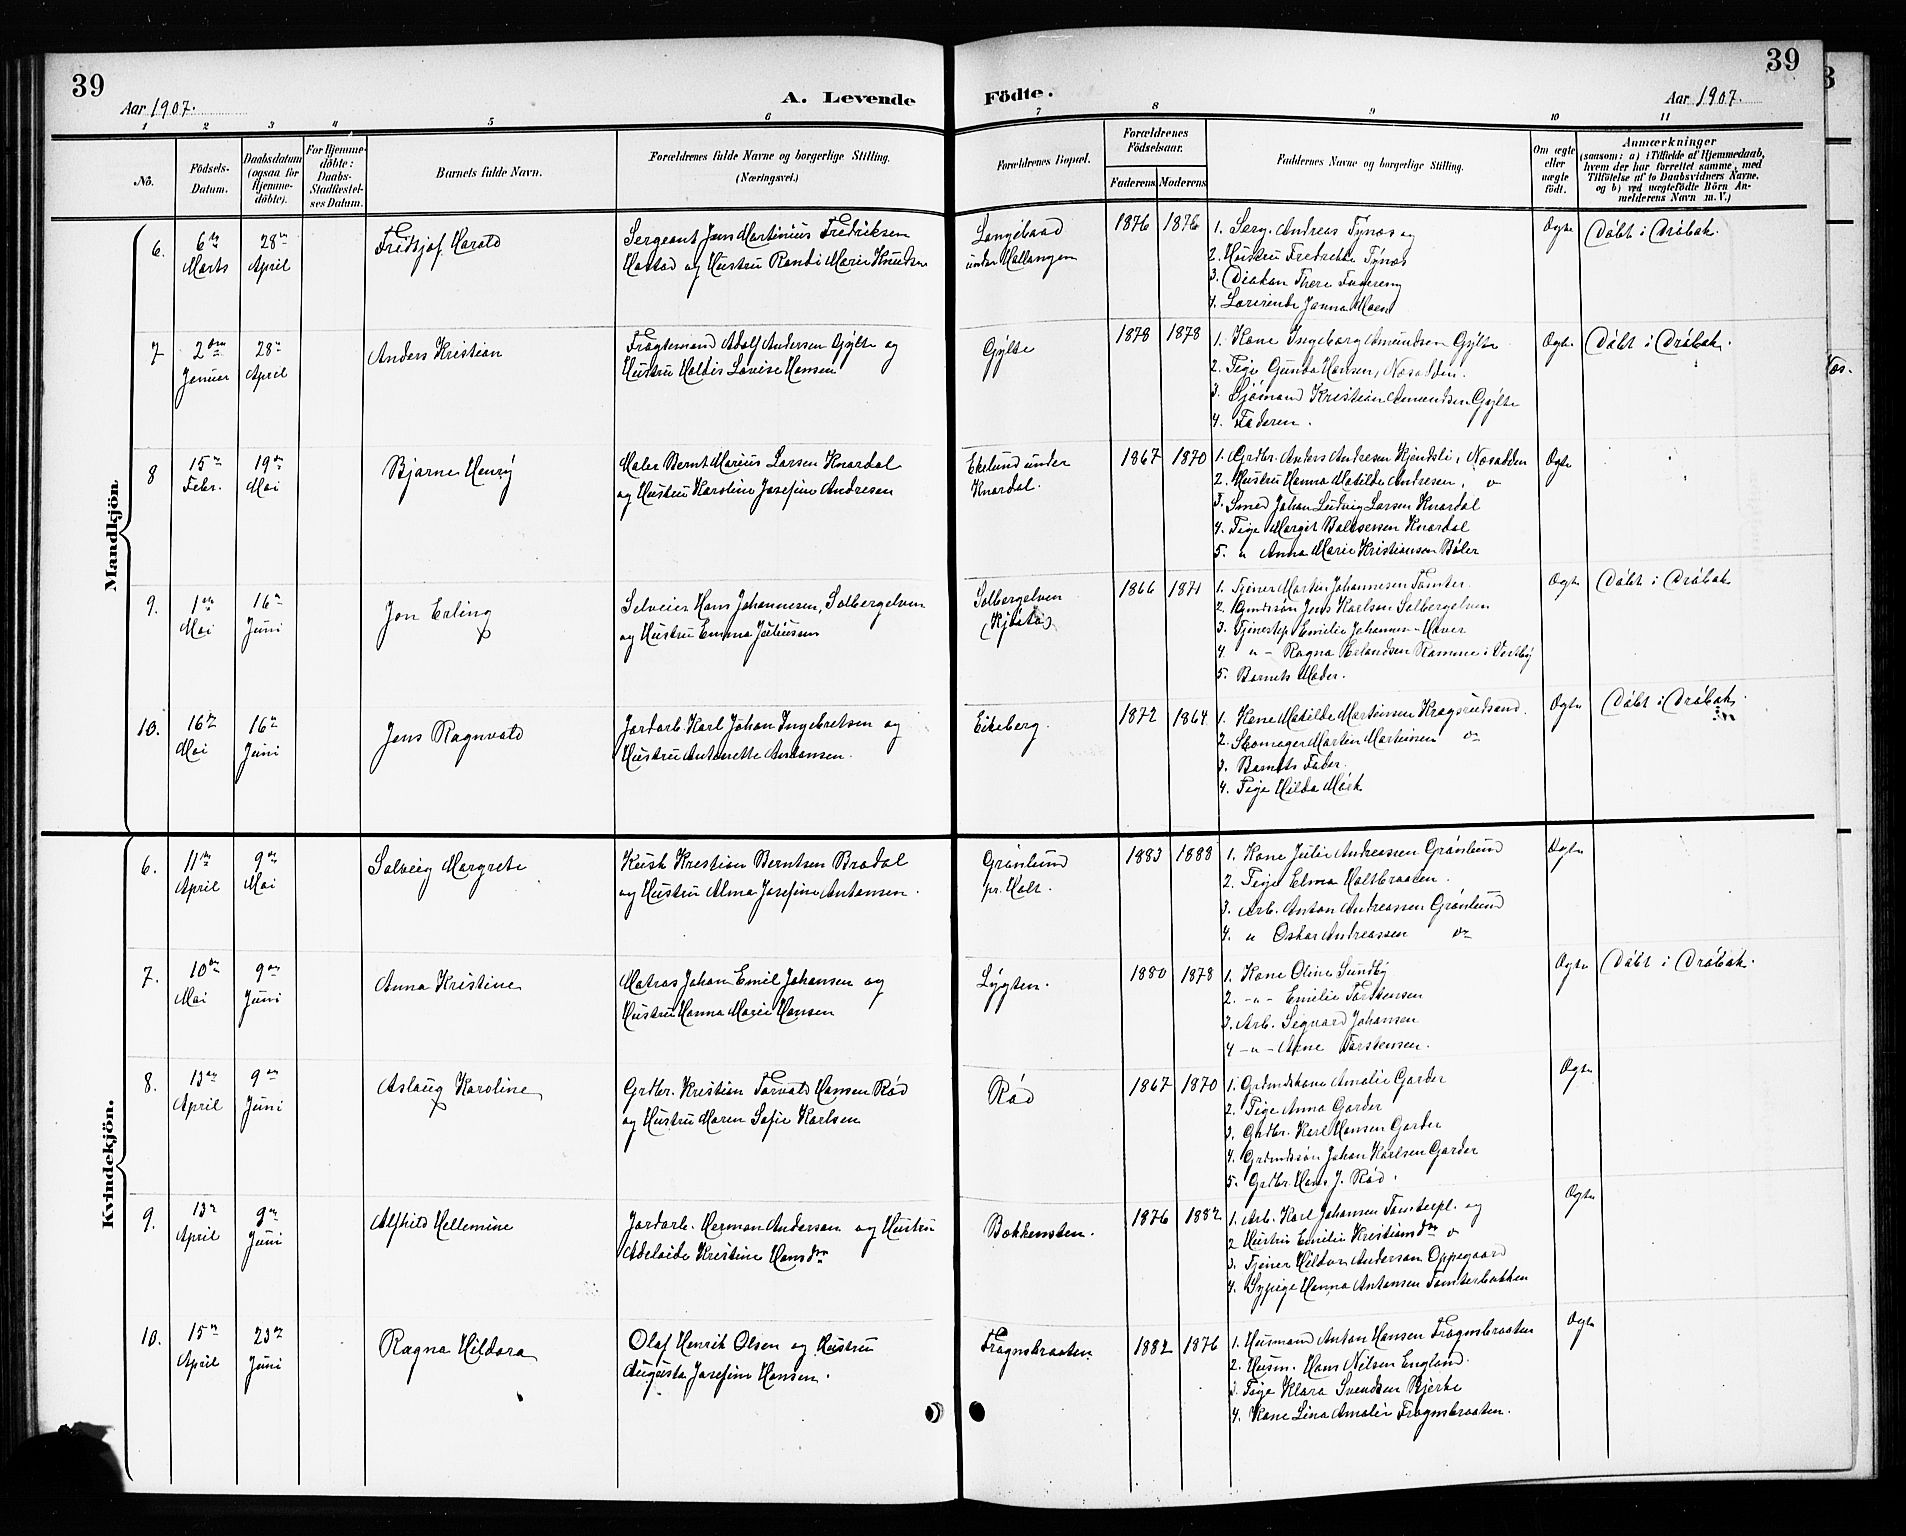 39
39
Aar 1907.
A. Levende Födte.
Aar 1907.
1 2 3 4 5 6 7 8 9 10 11
No.
Födsels-Datum.
Daabsdatum (ogsaa for Hjemme-döbte).
For Hjemme-döbte: Daabs-Stadfæstel-ses Datum.
Barnets fulde Navn.
Forældrenes fulde Navne og borgerlige Stilling. (Næringsvei.)
Forældrenes Bopæl.
Forældrenes Födselsaar.
Faderens Moderens
Faddernes Navne og borgerlige Stilling.
Om ægte eller uægte födt.
Anmærkninger
(saasom: a) i Tilfælde af Hjemmedaab, hvem der har forrettet samme, med Tilföielse af to Daabsvidners Navne, og b) ved uægtefödte Börn An-melderens Navn m. V.)
Mandkjön
6. 6te Marts 28de April Fredtjof Harald
Sergeant Jens Martinius Fredriksen
og Hustru Randi Marie Knudsen
Langebaad
under Hallangen
1876 1876
1. Serg. Andreas Tÿnæs og
2. Hustru Fredrikke Tÿnæs
3. Diakon There
4. Lærerinde Janna Moen
Ægte Döbt i Dröbak.
7 2den Januar 28de April Anders Kristian
Fragtemand Adolf Andersen Gÿlte og
Hustru Haldis Lovise Hansen
Gÿlte
1878 1878
1. Kone Ingeborg Amundsen Gÿlte
2. Pige Gunda Hansen, Næsodden.
3. Sjömand Kristian Amundsen Gÿlte
4. Faderen.
Ægte Döbt i Dröbak.
8 15de Febr. 19de Mai Bjarne Henrÿ
Maler Bernt Marius Larsen Knardal
og Hustru Karoline Josefine Andresen
Ekelund under
Knardal.
1867 1870
1. Grdbr. Anders Andresen Kjöndsli, Næsodden
2. Hustru Hanna Matilde Andresen, o
3. Smed Johan Ludvig Larsen Knardal
4. Pige Margit Baltsersen Knardal
5. " Anna Marie Kristiansen Böler
Ægte
9. 1ste Mai 16de Juni Jon Erling
Selveier Hans Johannesen, Solbergelven
og Hustru Emma Juliussen
Solbergelven
1866 1871
1. Tjener Martin Johannesen Tomter
2. Grndssön Jens Karlsen Solbergelven
3. Tjenestep. Emilie Johannes- Haver
4. " - Ragna Erlandsen Ramme i Vestby
5. Barnets Moder.
Ægte Döbt i Dröbak
10. 16de Mai 16de Juni Jens Ragnvald
Jordarb. Karl Johan Ingebretsen og
Hustru Antonette Antonsen.
Eikeberg.
1872 1864
1. Kone Matilde Martinsen Kragsrudsand
2. Skomager Martin Martinsen do
3. Barnets Fader.
4. Pige Hilda Mörk
Ægte Döbt i Dröbak.
Kvindekjön.
6. 11te April 9de Mai Solveig Margrete
Kusk Kristian Berntsen Brodal
og Hustru Alma Josefine Antonsen.
Grönlund
pr. Holt.
1883 1888
1. Kone Julie Andreassen Grönlund
2. Pige Elma Holtbraaten.
3. Arb. Anton Andreassen Grönlund
4. " Oskar Andreassen do
Ægte
7. 10de Mai 9de Juni Anna Kristine
Matros Johan Emil Johansen og
Hustru Hanna Marie Hansen
Lÿgten.
1880 1878
1. Kone Oline Sundbÿ
2. - " - Emilie Torstensen
3. Arb. Sigvard Johansen
4 - " - Arne Torstensen.
Ægte Döbt i Dröbak.
8. 13de April 9de Juni Aslaug Karoline
Grdbr. Kristian Torvald Hansen Röd
og Hustru Maren Sofie Karlsen
Röd
1867 1870
1. Grdmdskone Amalie Garder
2. Pige Anna Garder
3. Grdbr. Karl Hansen Garder
4. Grdmdssön Johan Karlsen Garder
5. Grdbr. Hans J. Röd.
Ægte
9. 13de April 9de Juni Alfhild Hellemine
Jordarb. Herman Andersen og Hustru
Adelaide Kristine Hansdtr
Bækkensten.
1876 1882
1. Arb. Karl Johansen Tomterpl. og
2 Hustru Emilie Kristiansdtr o
3. Tjener Hildor Andersen Oppegaard
4. Sypige Hanna Antonsen Tomterbakken
Ægte
10. 15de April 23de Juni Ragna Hildora
Olaf Henrik Olsen og Hustru
Augusta Josefine Hansen.
Frognsbraaten.
1882 1876
1. Husmand Anton Hansen Frognsbraaten
2. Husm. Hans Nilsen England.
3. Pige Klara Svendsen Bjerke
4. Kone Lina Amalie Frognsbraaten.
Ægte